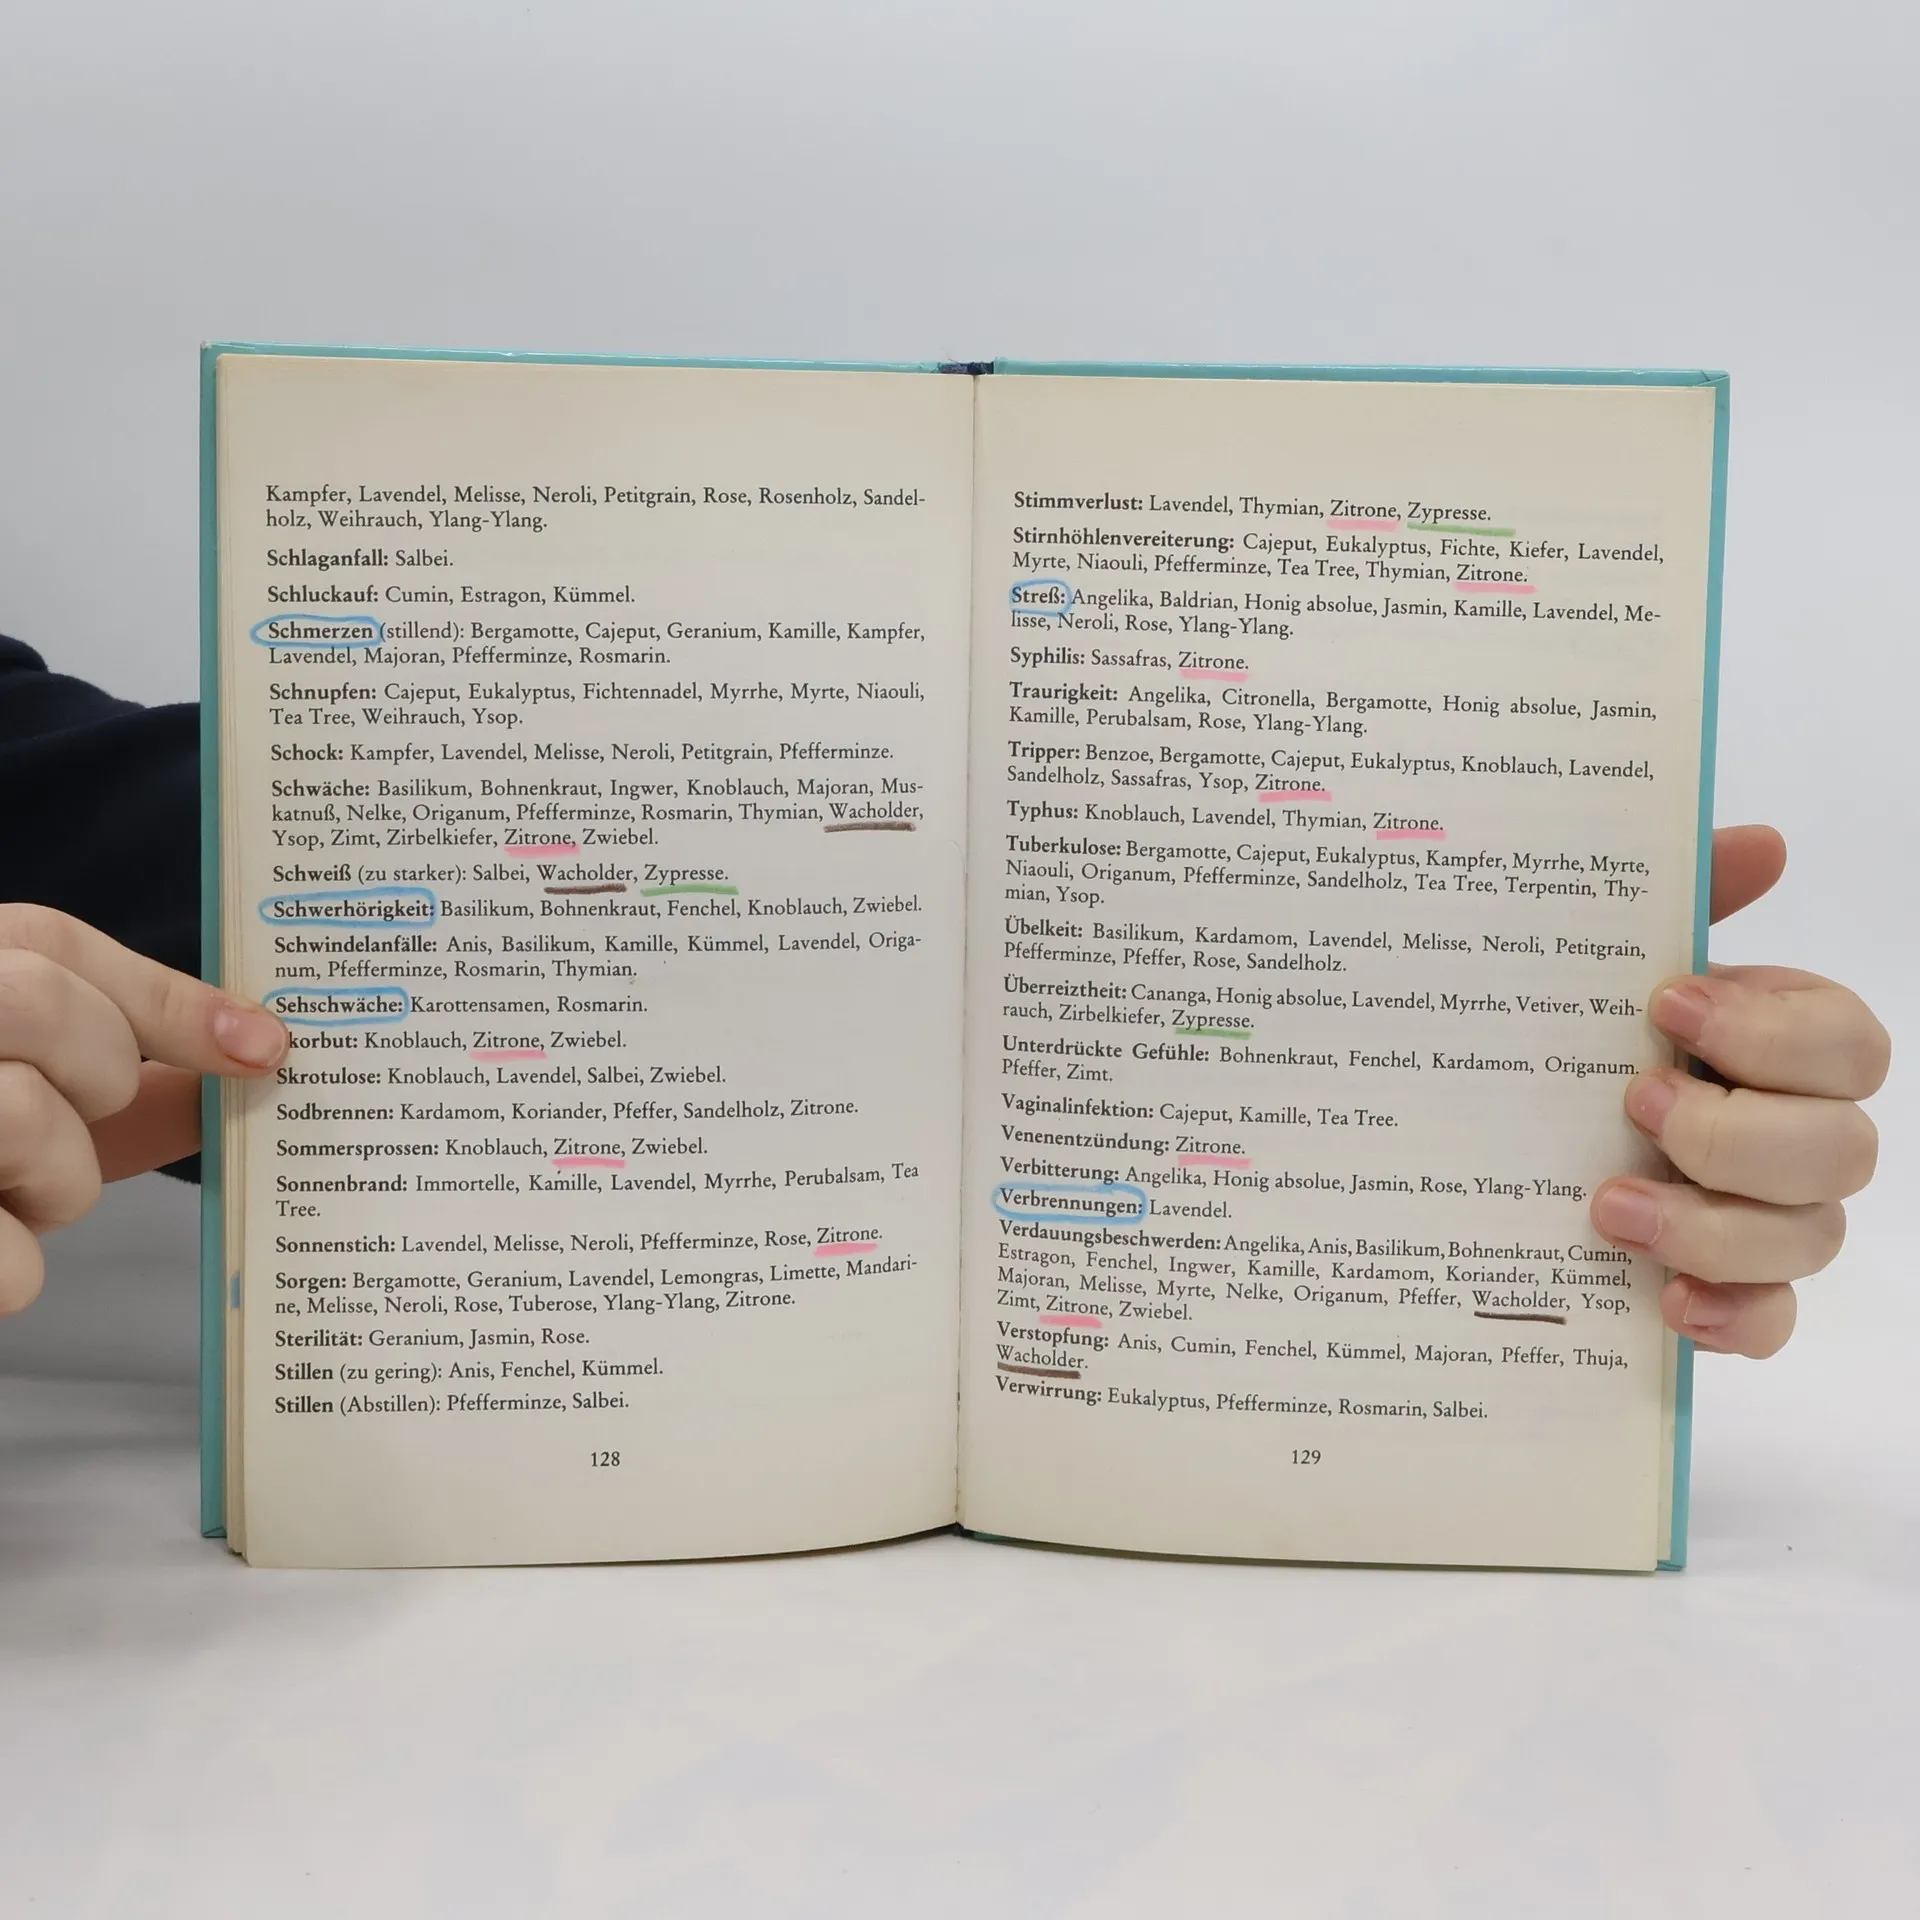 Kampfer, Lavendel, Melisse, Neroli, Petitgrain, Rose, Rosenholz, Sandel-
holz, Weihrauch, Ylang-Ylang.
Schlaganfall: Salbei.
Schluckauf: Cumin, Estragon, Kümmel.
Schmerzen (stillend): Bergamotte, Cajeput, Geranium, Kamille, Kampfer,
Lavendel, Majoran, Pfefferminze, Rosmarin.
Schnupfen: Cajeput, Eukalyptus, Fichtennadel, Myrrhe, Myrte, Niaouli,
Tea Tree, Weihrauch, Ysop.
Schock: Kampfer, Lavendel, Melisse, Neroli, Petitgrain, Pfefferminze.
Schwäche: Basilikum, Bohnenkraut, Ingwer, Knoblauch, Majoran, Mus-
katnuß, Nelke, Origanum, Pfefferminze, Rosmarin, Thymian, Wacholder,
Ysop, Zimt, Zirbelkiefer, Zitrone, Zwiebel.
Schweiß (zu starker): Salbei, Wacholder, Zypresse.
Schwerhörigkeit: Basilikum, Bohnenkraut, Fenchel, Knoblauch, Zwiebel.
Schwindelanfälle: Anis, Basilikum, Kamille, Kümmel, Lavendel, Origa-
num, Pfefferminze, Rosmarin, Thymian.
Sehschwäche: Karottensamen, Rosmarin.
korbut: Knoblauch, Zitrone, Zwiebel.
Skrotulose: Knoblauch, Lavendel, Salbei, Zwiebel.
Sodbrennen: Kardamom, Koriander, Pfeffer, Sandelholz, Zitrone.
Sommersprossen: Knoblauch, Zitrone, Zwiebel.
Sonnenbrand: Immortelle, Kamille, Lavendel, Myrrhe, Perubalsam, Tea
Tree.
Sonnenstich: Lavendel, Melisse, Neroli, Pfefferminze, Rose, Zitrone.
Sorgen: Bergamotte, Geranium, Lavendel, Lemongras, Limette, Mandari-
ne, Melisse, Neroli, Rose, Tuberose, Ylang-Ylang, Zitrone.
Sterilität: Geranium, Jasmin, Rose.
Stillen (zu gering): Anis, Fenchel, Kümmel.
Stillen (Abstillen): Pfefferminze, Salbei.
128
Stimmverlust: Lavendel, Thymian, Zitrone, Zypresse.
Stirnhöhlenvereiterung: Cajeput, Eukalyptus, Fichte, Kiefer, Lavendel,
Myrte, Niaouli, Pfefferminze, Tea Tree, Thymian, Zitrone.
Streß: Angelika, Baldrian, Honig absolue, Jasmin, Kamille, Lavendel, Me-
lisse, Neroli, Rose, Ylang-Ylang.
Syphilis: Sassafras, Zitrone.
Traurigkeit: Angelika, Citronella, Bergamotte, Honig absolue, Jasmin,
Kamille, Perubalsam, Rose, Ylang-Ylang.
Tripper: Benzoe, Bergamotte, Cajeput, Eukalyptus, Knoblauch, Lavendel,
Sandelholz, Sassafras, Ysop, Zitrone.
Typhus: Knoblauch, Lavendel, Thymian, Zitrone.
Tuberkulose: Bergamotte, Cajeput, Eukalyptus, Kampfer, Myrrhe, Myrte,
Niaouli, Origanum, Pfefferminze, Sandelholz, Tea Tree, Terpentin, Thy-
mian, Ysop.
Übelkeit: Basilikum, Kardamom, Lavendel, Melisse, Neroli, Petitgrain,
Pfefferminze, Pfeffer, Rose, Sandelholz.
Überreiztheit: Cananga, Honig absolue, Lavendel, Myrrhe, Vetiver, Weih-
rauch, Zirbelkiefer, Zypresse.
Unterdrückte Gefühle: Bohnenkraut, Fenchel, Kardamom, Origanum.
Pfeffer, Zimt.
Vaginalinfektion: Cajeput, Kamille, Tea Tree.
Venenentzündung: Zitrone.
Verbitterung: Angelika, Honig absolue, Jasmin, Rose, Ylang-Ylang.
Verbrennungen: Lavendel.
Verdauungsbeschwerden: Angelika, Anis, Basilikum, Bohnenkraut, Cumin,
Estragon, Fenchel, Ingwer, Kamille, Kardamom, Koriander, Kümmel,
Majoran, Melisse, Myrte, Nelke, Origanum, Pfeffer, Wacholder, Ysop,
Zimt, Zitrone, Zwiebel.
Verstopfung: Anis, Cumin, Fenchel, Kümmel, Majoran, Pfeffer, Thuja,
Wacholder.
Verwirrung: Eukalyptus, Pfefferminze, Rosmarin, Salbei.
129